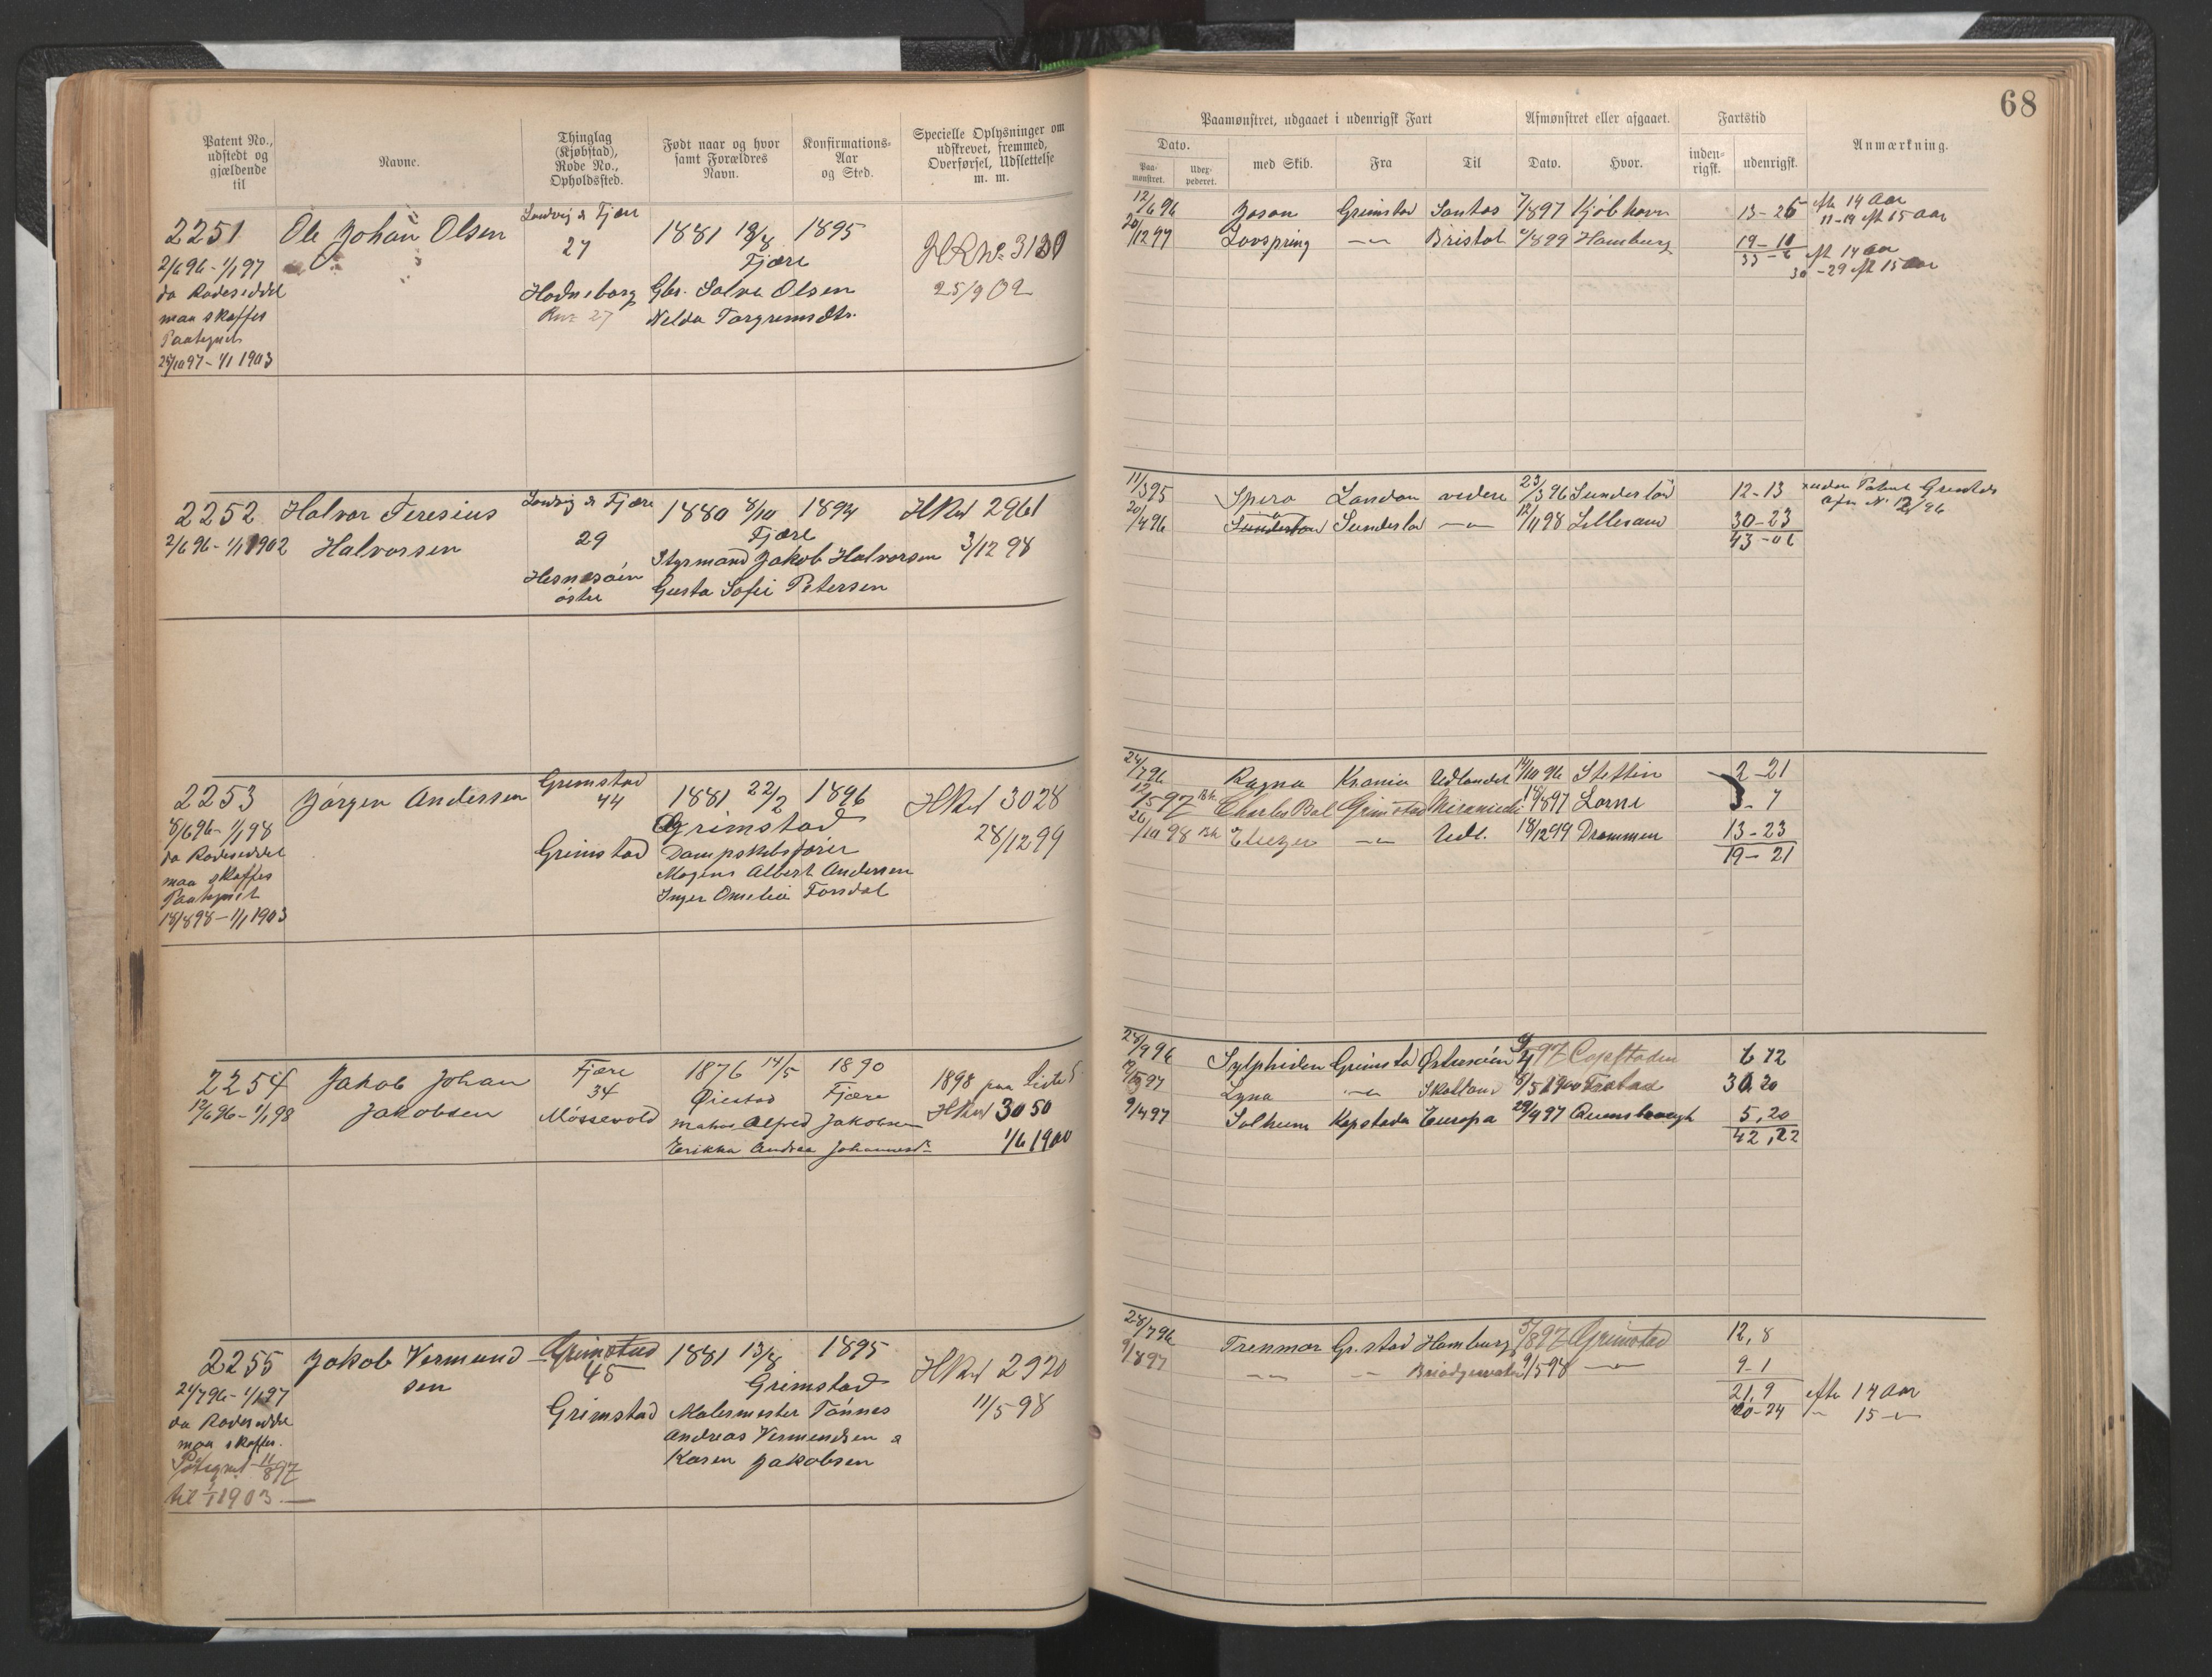 68
Patent No., udstedt og gjældende til
Navne.
Thinglag (Kjøbstad), Rode No., Opholdssted.
Født naar og hvor samt Forældres Navn.
Konfirmations-Aar og Sted.
Specielle Oplysninger om udskrevet, fremmed, Overførsel, Udslettelse m. m.
Paamønstret, udgaaet i udenrigsk Fart
Dato.
Paamønstret.
Udexpederet.
med Skib.
Fra
Til
Afmønstret eller afgaaet.
Dato.
Hvor.
Fartstid
indenrigsk.
udenrigsk.
Anmærkning.
2251
2/6 96 - 1/1 97
da Rodeseddel
maa skaffes
Paategnet
25/10 97 - 1/1 1903
Ole Johan Olsen
Landvig & Fjære
27
Hodneborg
Rnr 27
1881 19/8 1895
Fjære
Gbr. Salve Olsen
Nelda Torgrimsdtr.
HR No 3130
25/9 02
12/6 96 Jason Grimstad Santos 7/8 97 Kjøbhavn 13-26 efter 14 Aar
11-19 eft 15 Aar
20/12 97 Lovspring -"- Bristol 4/8 99 Hamburg 19-10
33-6 eft 14 Aar
30-29 eft 15 Aar
2252
2/6 96 - 1/1 1902
Halvor Teresius
Halvorsen
Landvig & Fjære
29
Hesnesøen
østre
1880 8/10 1894
Fjære
Styrmand Jakob Halvorsen
Gusta Sofie Petersen
HRul 2961
3/12 98
11/3 95 Spero London videre 23/3 96 Sunderland 12-13 uden Patent Grimstad
20/4 96 -"- Sunderland -"- 12/4 98 Lillesand 30-23
43-06
2253
8/6 96 - 1/1 98
da Rodeseddel
maa skaffes
Paategnet
18/8 98 - 1/1 1903
Jørgen Andersen
Grimstad
44
Grimstad
1881 22/2 1896
Grimstad
Dampskibsfører
Mogens Albert Andersen
Inger Omelia Torsdal
HRul 3028
28/12 99
24/7 96 Ragna Krania Udlandet 14/10 96 Stettin 2-21
12/5 97 Bk Charles Bal Grimstad Miramichi 18/8 97 Lorne 3-7
26/10 98 Bk Eliezer -"- Udl. 18/12 99 Drammen 13-23
19-21
2254
12/6 96 - 1/1 98
Jakob Johan
Jakobsen
Fjære
34
Mössevold
1876 14/5 1890
Øiestad Fjære
Matros Alfred Jakobsen
Erikka Andrea Johannesd.
1898 paa Liste 5
HRul 3050
1/6 1900
28/9 96 Sylphiden Grimstad Østersøen 97 Capstaden 6 12
97 Lyna -"- Skotland 8/5 1900 Fristad 30.20
9/4 97 Solheim Kapstaden Europa 29/9 97 Queensborough 5,20
42,22
2255
24/7 96 - 1/1 97
da Rodeseddel
maa skaffes.
Påtegnet 11/8 97
til 1/1 1903.—
Jakob Vermund
sen
Grimstad
45
Grimstad
1881 13/8 1895
Grimstad
Malermester Tönnes
Andreas Vermundsen &
Karen Jakobsen
HRul 2920
11/5 98
28/7 96 Trenmor Gr.stad Hamburg 5/8 97 Grimstad 12,8
9/8 97 -"- -"- Bridgewater 9/5 98 -"- 9-1
21,9 efter 14 Aar
20-24 -"- 15 -"-